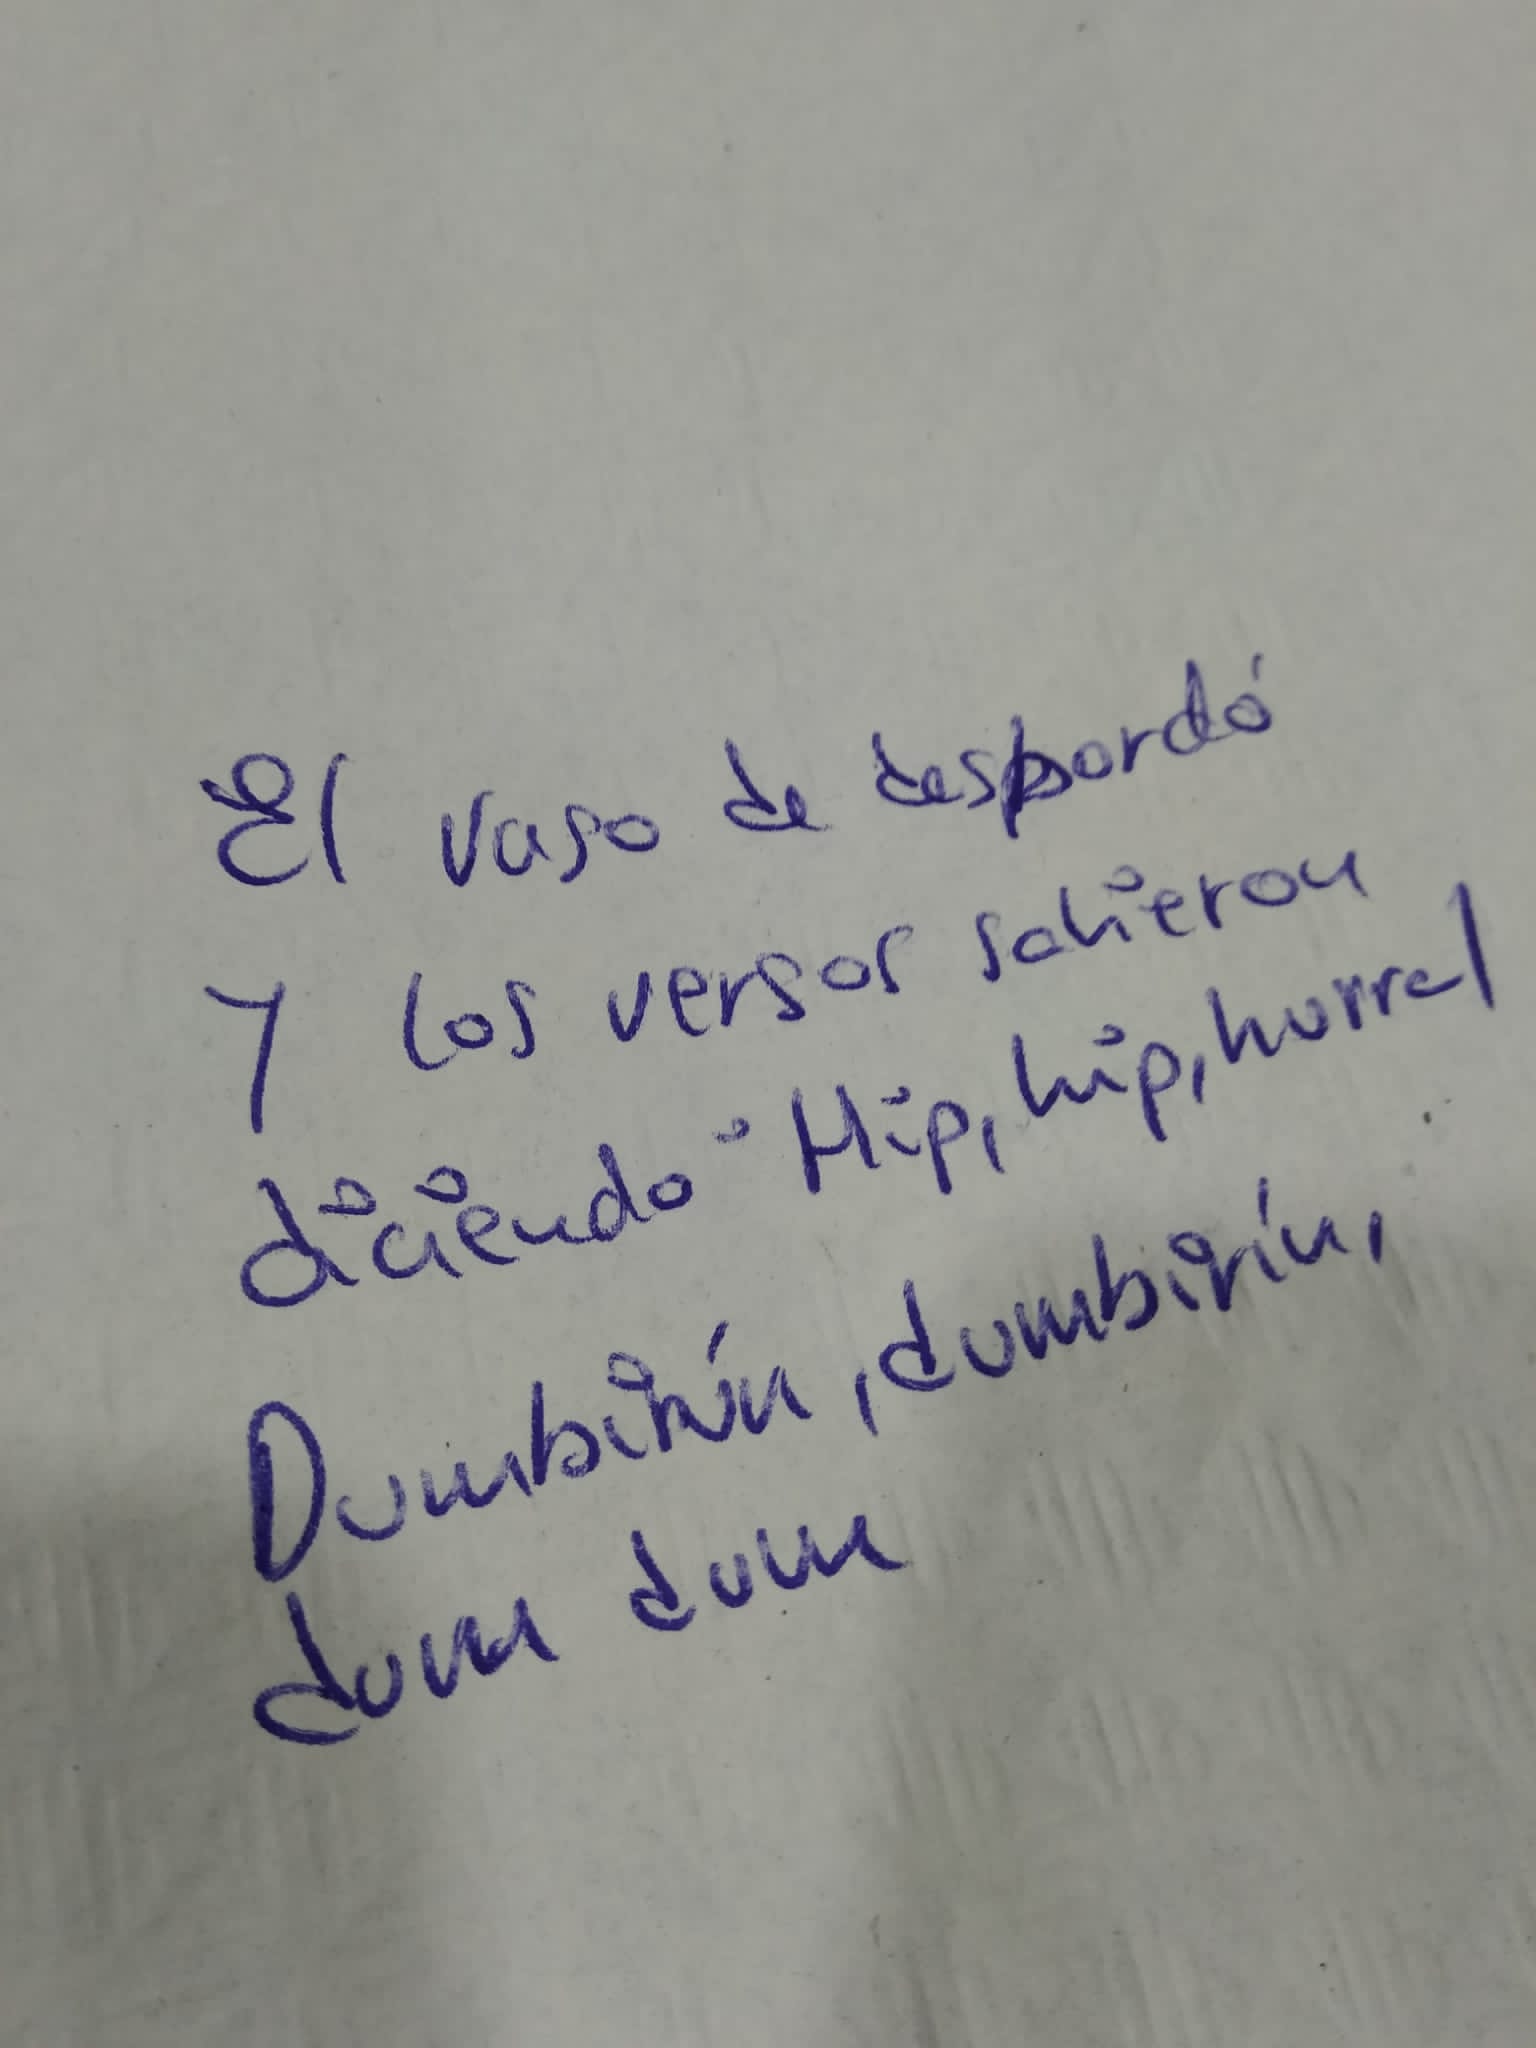 El vaso de desbordó
y los versos salieron
diciendo: Hip, hip, hurra!
Dumbirín, dumbirín,
dum dum